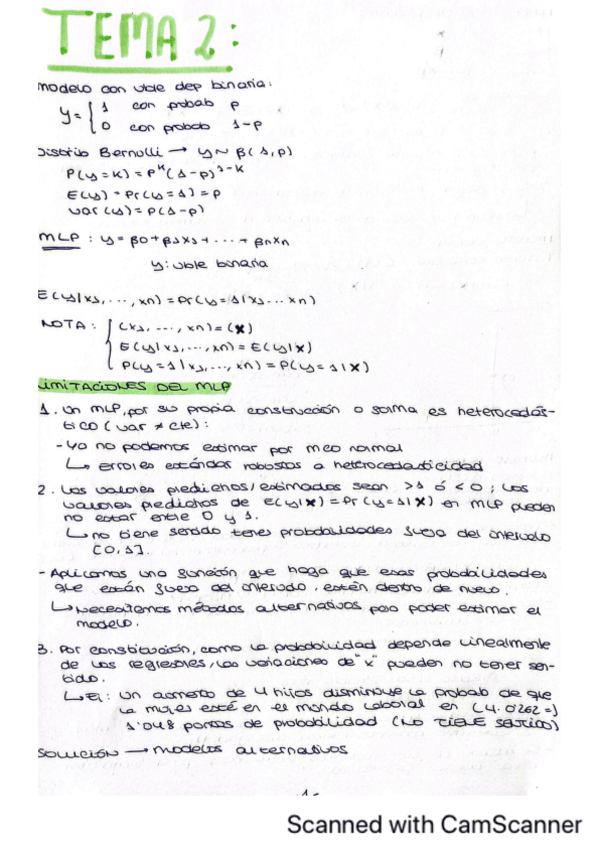 TEMA 2:
modelo con vble dep binaria:
y = { 1 con probab p
0 con probab 1-p
Distrib Bernulli → y ~ β(1,p)
P(y=k) = p^k (1-p)^1-k
E(y) = Pr(y=1) = p
var(y) = p(1-p)
MLP : y = β0 + β1x1 + ... + βnxn
y: vble binaria
E(y|x1, ..., xn) = Pr(y=1|x1 ... xn)
NOTA : { (x1, ..., xn) = (x)
E(y|x1, ..., xn) = E(y|x)
P(y=1|x1, ..., xn) = P(y=1|x)
LIMITACIONES DEL MLP
1. Un MLP, por su propia construcción o forma es heterocedás-
tico (var ≠ cte):
- Ya no podemos estimar por mco normal
↳ errores estándar robustos a heterocedasticidad
2. Los valores predichos/estimados sean >1 ó <0; los
valores predichos de E(y|x) = Pr(y=1|x) en MLP pueden
no estar entre 0 y 1.
↳ no tiene sentido tener probabilidades fuera del intervalo
[0,1].
- Aplicamos una función que haga que esas probabilidades
que están fuera del intervalo, estén dentro de nuevo.
↳ Necesitamos métodos alternativos para poder estimar el
modelo.
3. Por constitución, como la probabilidad depende linealmente
de los regresores, las variaciones de "x" pueden no tener sen-
tido.
↳ Ej: un aumento de 4 hijos disminuye la probab de que
la mujer esté en el mundo laboral en (4·0262=)
1'048 puntos de probabilidad (NO TIENE SENTIDO)
SOLUCIÓN → modelos alternativos
Scanned with CamScanner